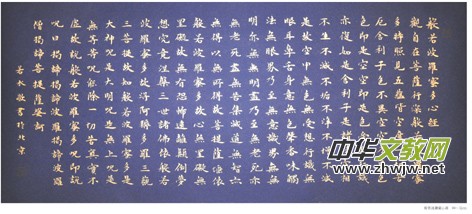 般若波羅蜜多心經
觀自在菩薩行深般若波羅蜜
多時照見五蘊皆空度一切苦
厄舍利子色不異空空不異色
色即是空空即是色受想行識
亦復如是舍利子是諸法空相
不生不滅不垢不淨不增不減
是故空中無色無受想行識無
眼耳鼻舌身意無色聲香味觸
法無眼界乃至無意識界無無
明亦無無明盡乃至無老死亦
無老死盡無苦集滅道無智亦
無得以無所得故菩提薩埵依
般若波羅蜜多故心無罣礙無
罣礙故無有恐怖遠離顛倒夢
想究竟涅槃三世諸佛依般若
波羅蜜多故得阿耨多羅三藐
三菩提故知般若波羅蜜多是
大神咒是大明咒是無上咒是
無等等咒能除一切苦真實不
虛故說般若波羅蜜多咒即說
咒曰揭諦揭諦波羅揭諦波羅
僧揭諦菩提薩婆訶
若水敬書於北京
中华文教网